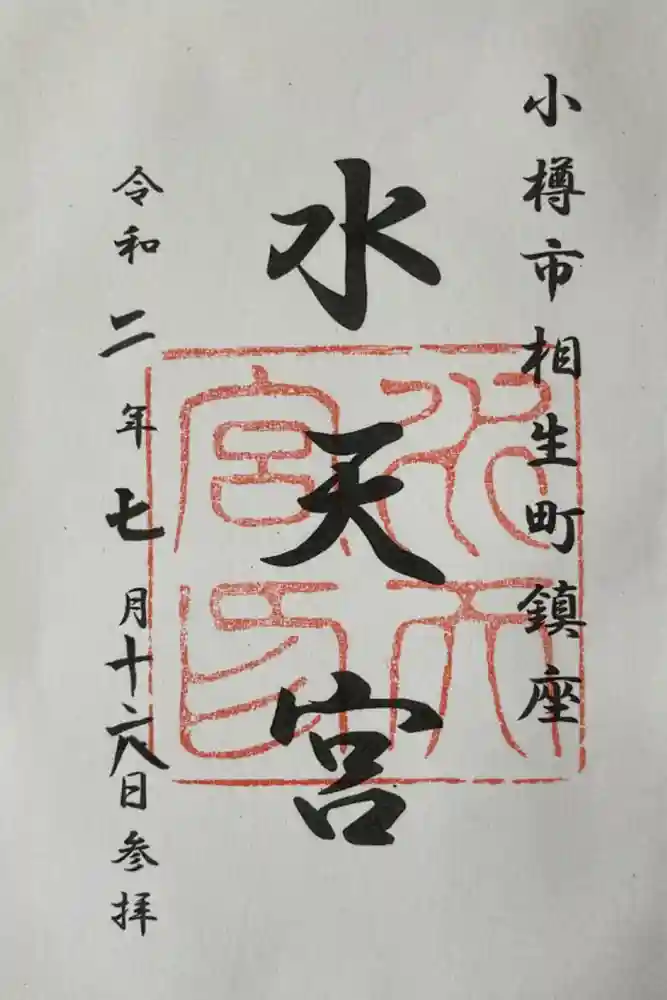 小樽市相生町鎮座
水天宮
令和二年七月十六日参拝
水天宮印